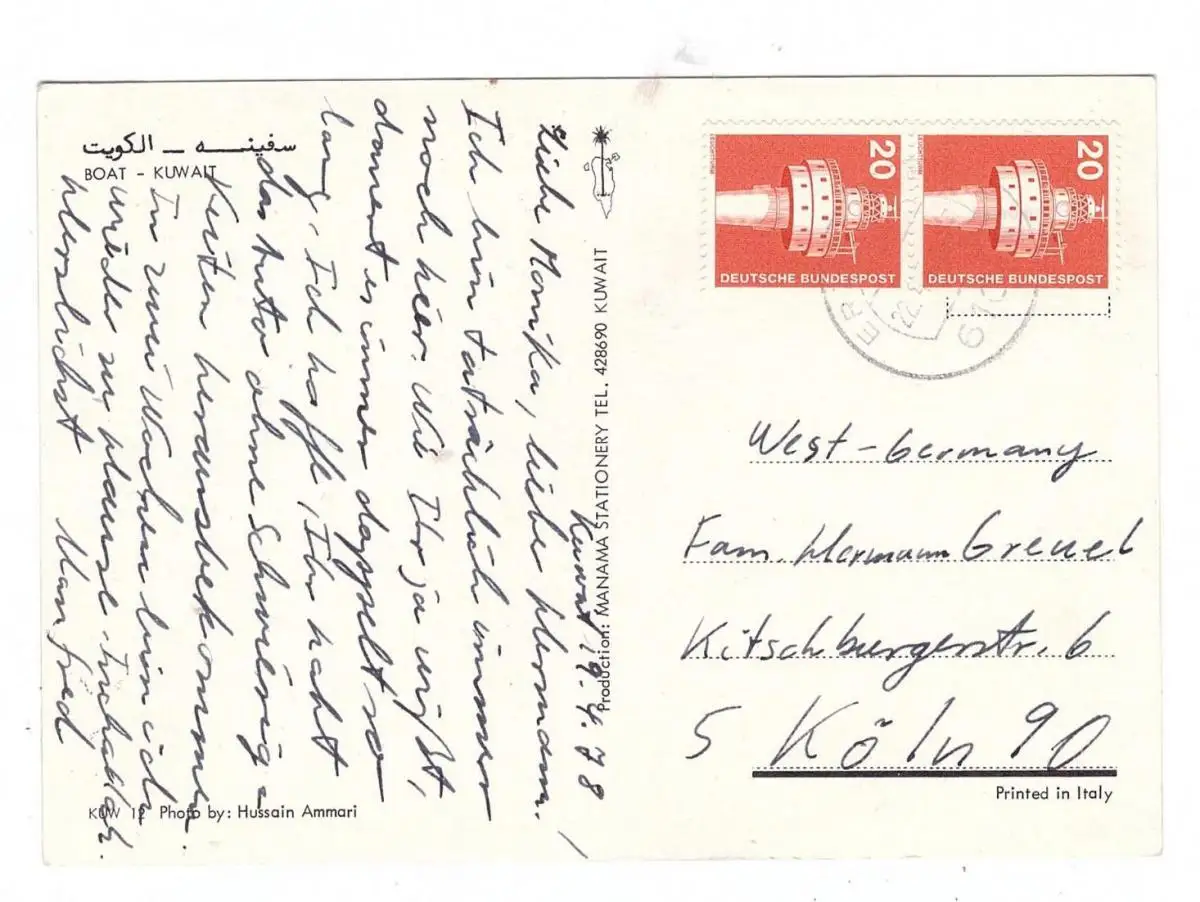 سفينه - الكويت
BOAT - KUWAIT
Kuwait, 19.4.78
Liebe Monika, lieber Hermann.
Ich bin tatsächlich immer
noch hier. Wie Ihr ja wißt,
dauert es immer doppelt so
lang. Ich hoffe, Ihr habt
das Auto ohne Schwierig-
keiten herausbekommen.
In zwei Wochen bin ich
wieder zu Hause. Inchallah.
Herzlichst Manfred
KUW 12 Photo by: Hussain Ammari
Production: MANAMA STATIONERY TEL. 428690 KUWAIT
LEUCHTTURM
20
DEUTSCHE BUNDESPOST
LEUCHTTURM
20
DEUTSCHE BUNDESPOST
West-Germany
Fam. Hermann Greuel
Kitschburgerstr. 6
5 Köln 90
Printed in Italy